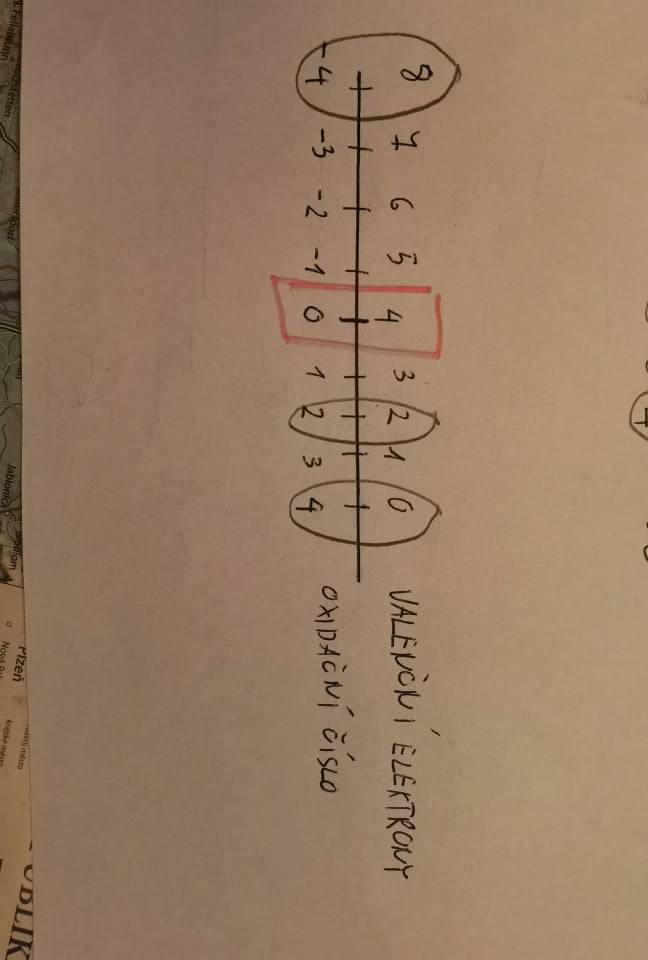 8 7 6 5 4 3 2 1 0 VALENČNÍ ELEKTRONY
-4 -3 -2 -1 0 1 2 3 4 OXIDAČNÍ ČÍSLO
Jablonica
Plzeň
krajské město